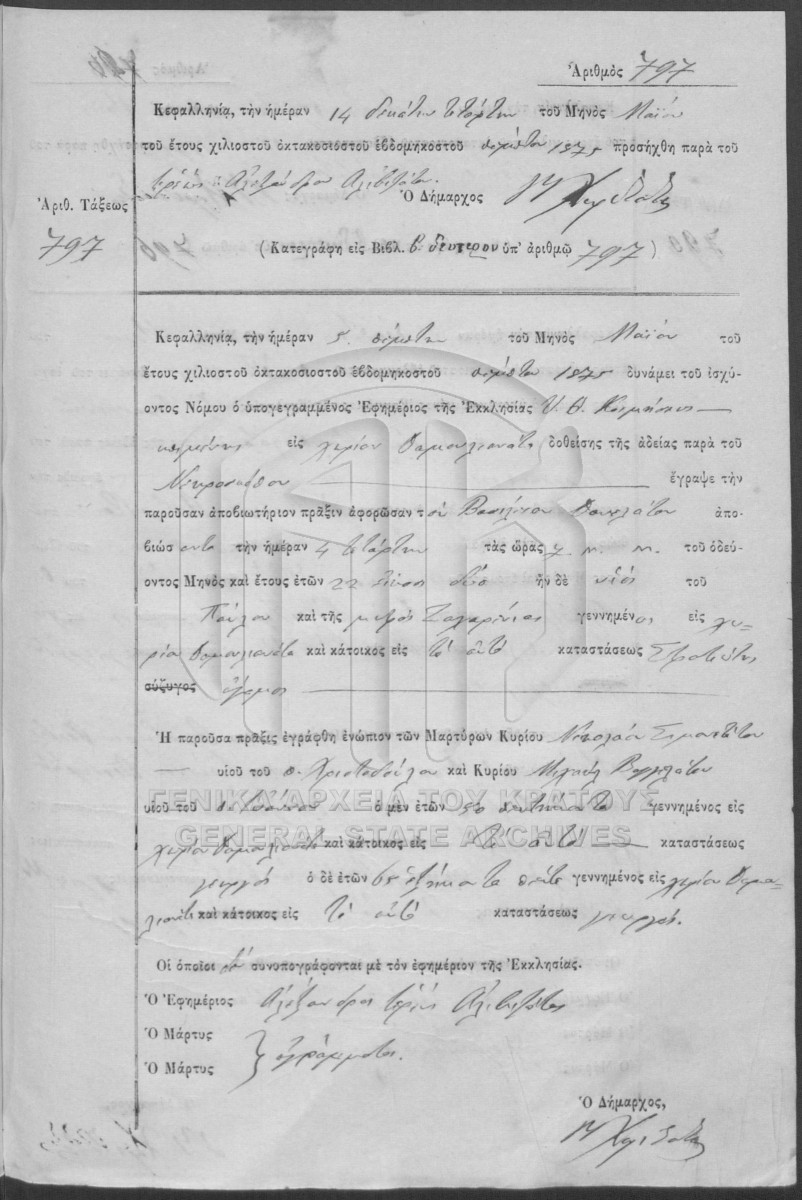 Ἀριθμὸς 797
Κεφαλληνίᾳ, τὴν ἡμέραν 14 δεκάτην τετάρτην τοῦ Μηνὸς Μαΐου
τοῦ ἔτους χιλιοστοῦ ὀκτακοσιοστοῦ ἑβδομηκοστοῦ πέμπτου 1875 προσήχθη παρὰ τοῦ
ἱερέως Ἀλεξάνδρου Ἀλιβιζάτου Ὁ Δήμαρχος
Ἀριθ. Τάξεως
797
( Κατεγράφη εἰς Βιβλ. β. δεύτερον ὑπ' ἀριθμῷ 797 )
Κεφαλληνίᾳ, τὴν ἡμέραν 5 πέμπτην τοῦ Μηνὸς Μαΐου τοῦ
ἔτους χιλιοστοῦ ὀκτακοσιοστοῦ ἑβδομηκοστοῦ πέμπτου 1875 δυνάμει τοῦ ἰσχύ-
οντος Νόμου ὁ ὑπογεγραμμένος Ἐφημέριος τῆς Ἐκκλησίας Υ. Θ. Κοιμήσεως
κειμένης εἰς χωρίον Δαμουλιανάτα δοθείσης τῆς ἀδείας παρὰ τοῦ
ἔγραψε τὴν
παροῦσαν ἀποβιωτήριον πρᾶξιν ἀφορῶσαν τὸν Βασίλειον ἀπο-
βιώσαντα τὴν ἡμέραν 4 τετάρτην τὰς ὥρας 7 π. μ. τοῦ ὁδεύ-
οντος Μηνὸς καὶ ἔτους ἐτῶν 22 εἴκοσι δύο ἦν δὲ υἱὸς τοῦ
Παύλου καὶ τῆς Ζαχαρένιας γεννημένος εἰς χω-
ρίον Δαμουλιανάτα καὶ κάτοικος εἰς τὸ αὐτὸ καταστάσεως Στρατιώτης
σύζυγος ἄγαμος
Ἡ παροῦσα πρᾶξις ἐγράφθη ἐνώπιον τῶν Μαρτύρων Κυρίου Νικολάου
υἱοῦ τοῦ π. Χριστοδούλου καὶ Κυρίου Μιχαὴλ
υἱοῦ τοῦ π. Ἰωάννου ὁ μὲν ἐτῶν 50 πεντήκοντα γεννημένος εἰς
χωρίον Δαμουλιανάτα καὶ κάτοικος εἰς τὸ αὐτὸ καταστάσεως
γεωργὸς ὁ δὲ ἐτῶν 65 ἑξήκοντα πέντε γεννημένος εἰς χωρίον Δαμου-
λιανάτα καὶ κάτοικος εἰς τὸ αὐτὸ καταστάσεως γεωργός.
Οἱ ὁποῖοι συνυπογράφονται μὲ τὸν ἐφημέριον τῆς Ἐκκλησίας.
Ὁ Ἐφημέριος Ἀλέξανδρος ἱερεὺς Ἀλιβιζάτος
Ὁ Μάρτυς
Ὁ Μάρτυς } ἀγράμματοι.
Ὁ Δήμαρχος,
ΓΕΝΙΚΑ ΑΡΧΕΙΑ ΤΟΥ ΚΡΑΤΟΥΣ
GENERAL STATE ARCHIVES